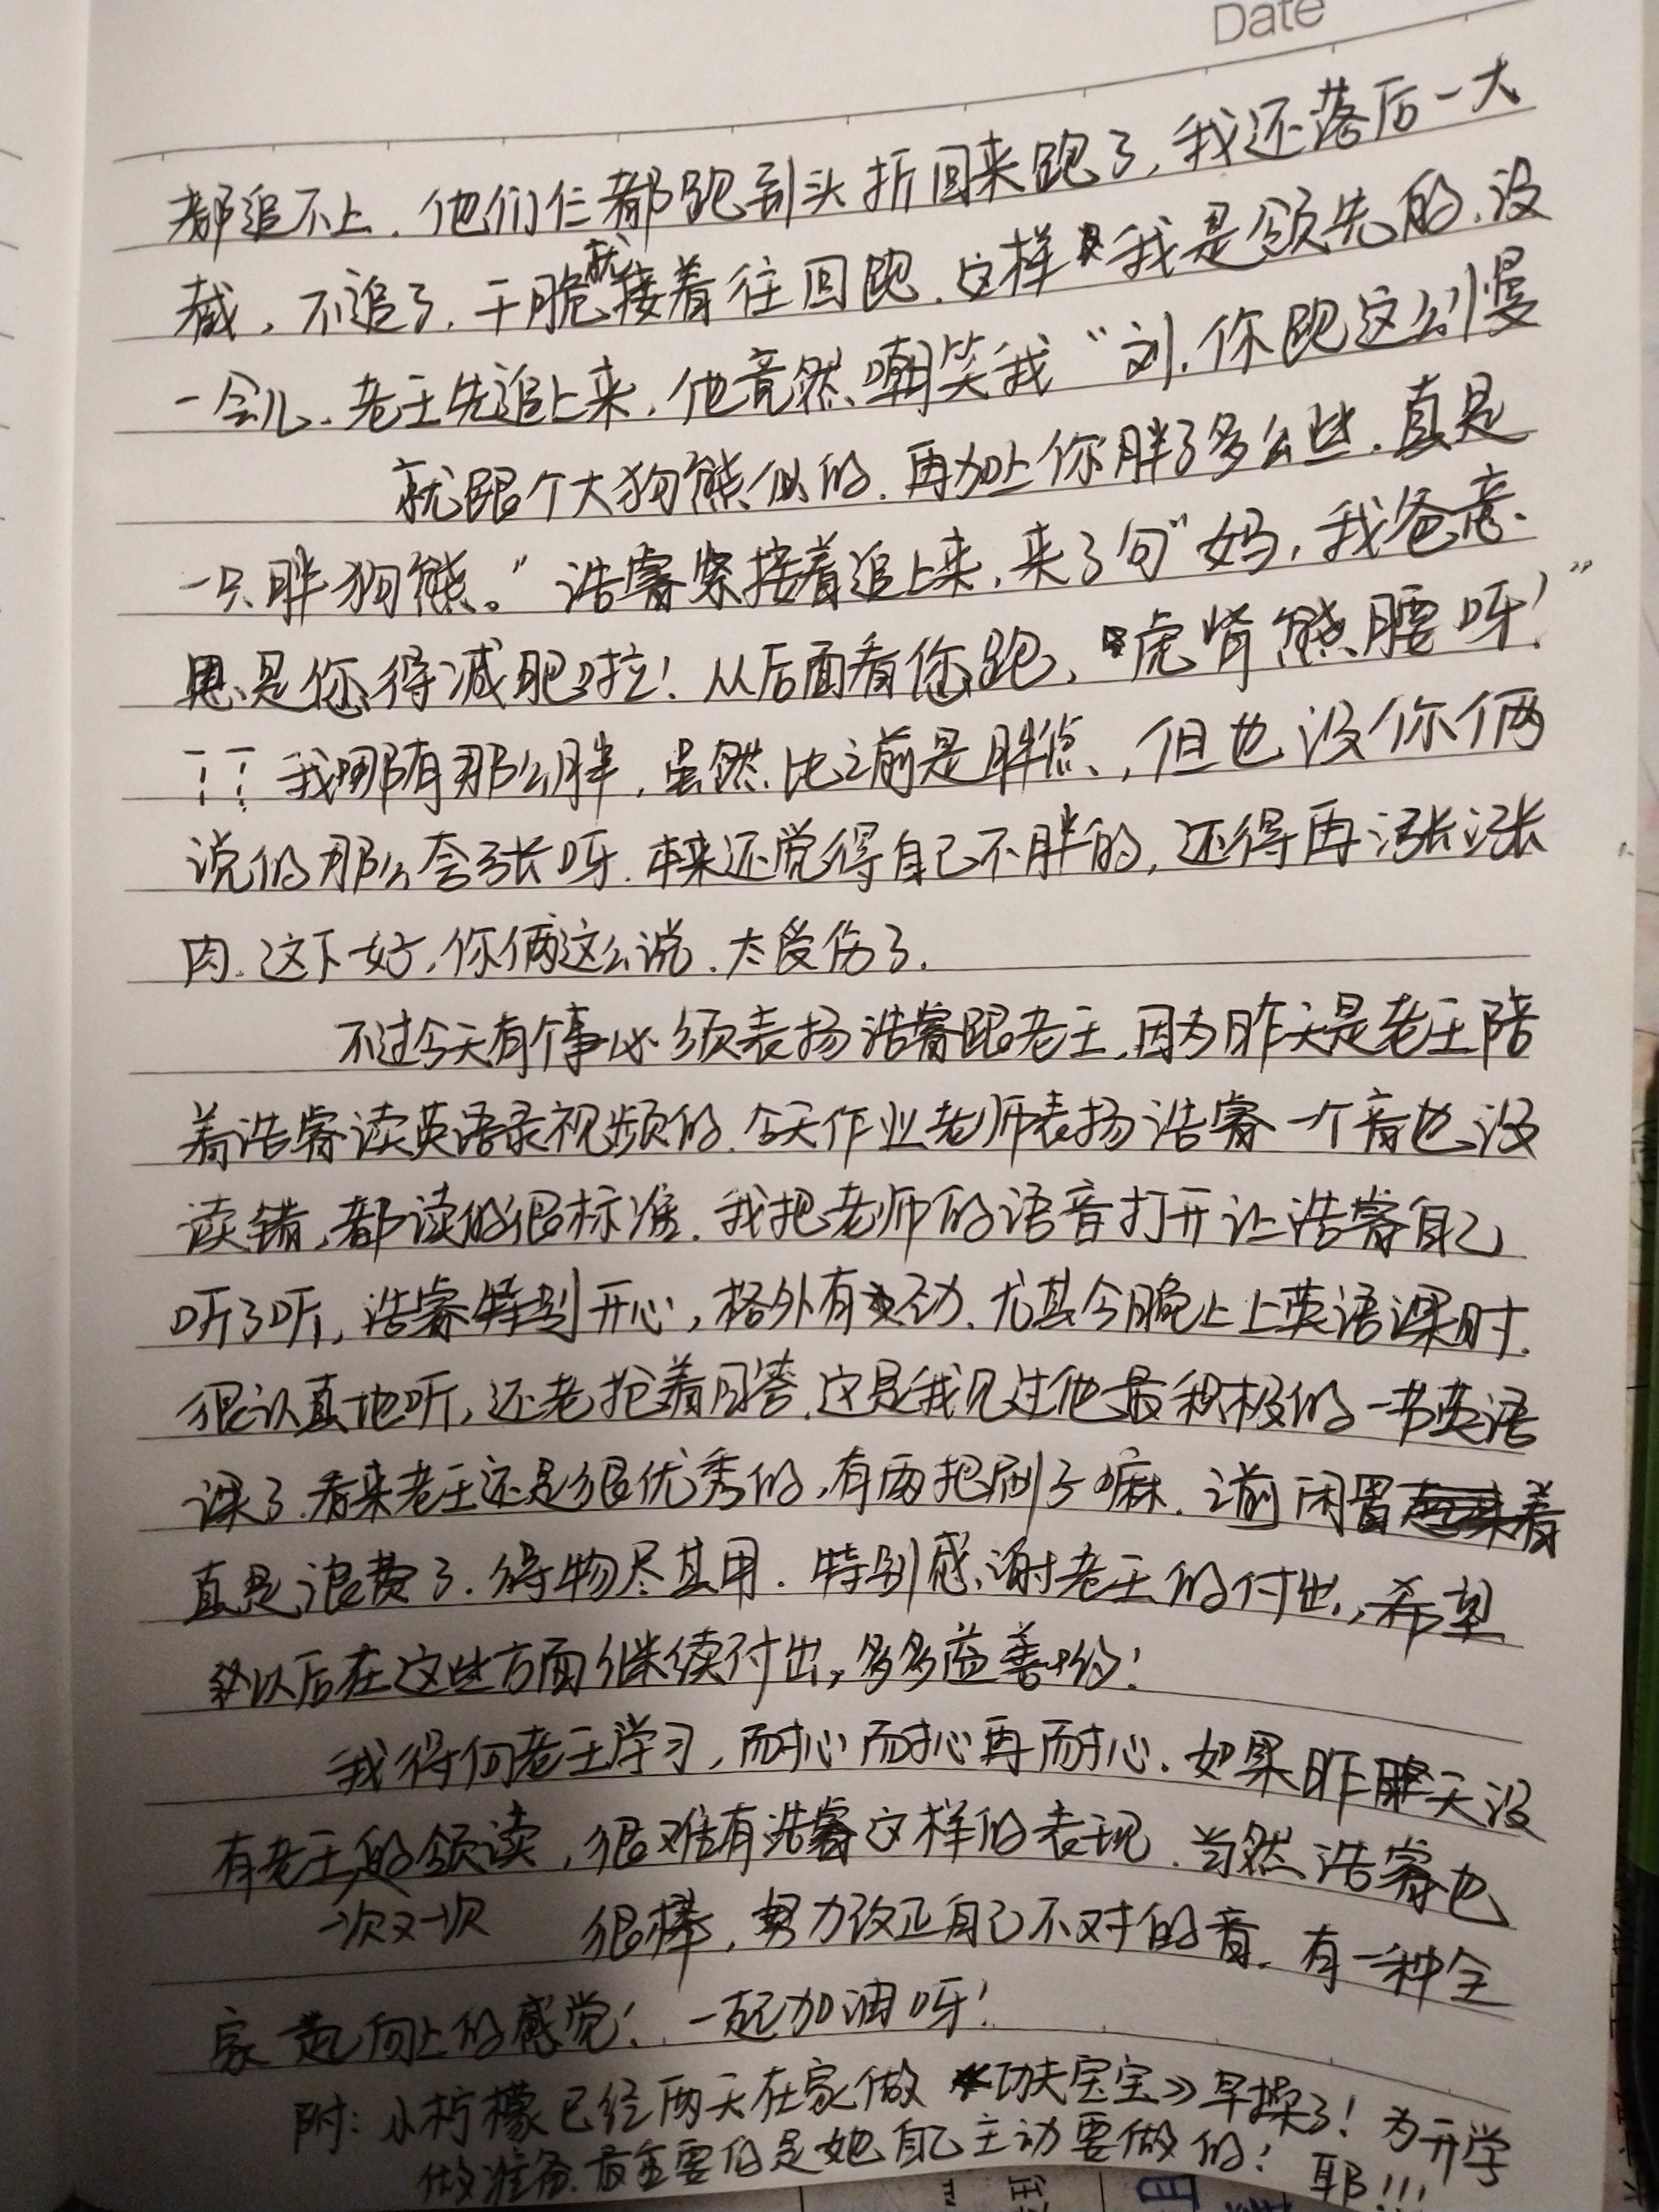 Date
都追不上.他们仨都跑到头折回来跑了,我还落后一大
截,不追了.干脆就接着往回跑.这样我是领先的.没
一会儿.老王先追上来,他竟然嘲笑我“刘.你跑这么慢
就跟个大狗熊似的.再加上你胖了多么些.真是
一只胖狗熊。”浩睿紧接着追上来,来了句“妈,我爸意
思是您得减肥啦!从后面看您跑,虎背熊腰呀!”
!!我哪有那么胖,虽然比之前是胖点,但也没你俩
说的那么夸张呀.本来还觉得自己不胖的,还得再涨涨
肉.这下好,你俩这么说.太受伤了.
不过今天有个事必须表扬浩睿跟老王.因为昨天是老王陪
着浩睿读英语录视频的.今天作业老师表扬浩睿一个音也没
读错,都读的很标准.我把老师的语音打开让浩睿自己
听了听,浩睿特别开心,格外有劲.尤其今晚上上英语课时.
很认真地听,还老抢着回答.这是我见过他最积极的一节英语
课了.看来老王还是很优秀的,有两把刷子嘛.之前闲置着
真是浪费了.得物尽其用.特别感谢老王的付出,希望
以后在这些方面继续付出,多多益善哈!
我得向老王学习,耐心耐心再耐心.如果昨天没
有老王的领读,很难有浩睿这样的表现.当然浩睿也
一次又一次 很棒,努力改正自己不对的音.有一种全
家一起向上的感觉!一起加油呀!
附:小柠檬已经两天在家做《功夫宝宝》早操了!为开学
做准备.最重要的是她自己主动要做的!耶!!!